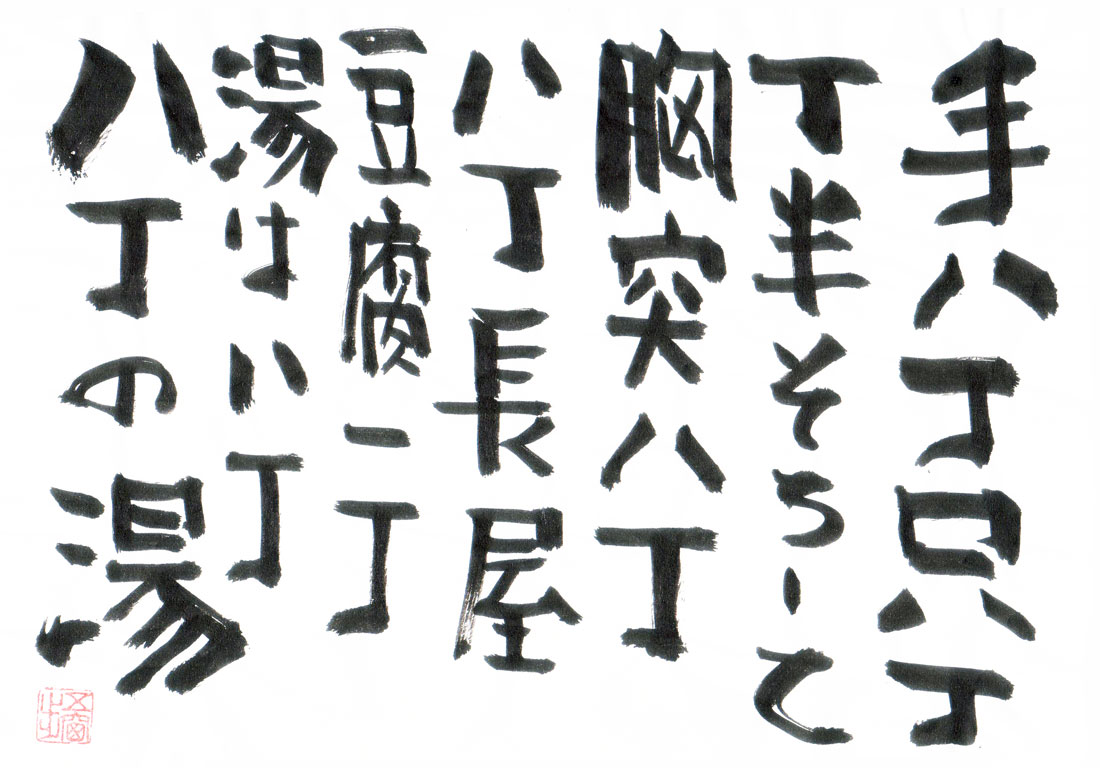 手八丁口八丁
丁半そろーて
胸突八丁
八丁長屋
豆腐一丁
湯はい丁
八丁の湯